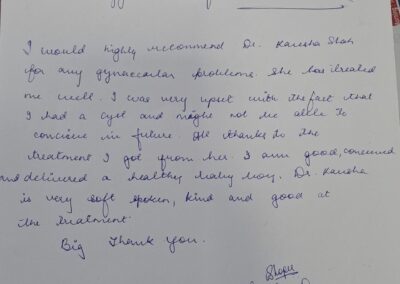 I would highly recommend Dr. Kanisha Shah
for any gynaecolar problems. She has treated
me well. I was very upset with the fact that
I had a cyst and might not be able to
concieve in future. All thanks to the
treatment I got from her. I am good, concieved
and delivered a healthy baby boy. Dr. Kanisha
is very soft spoken, kind and good at
the treatment.
Big Thank You.